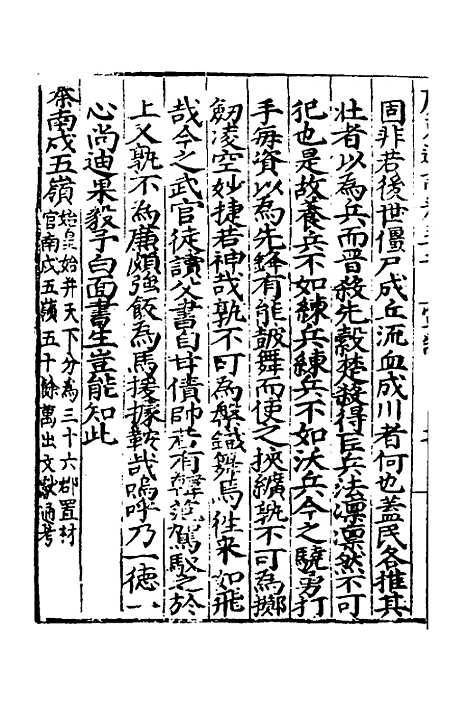 固非若後世僵尸成丘流血成川者何也蓋民各推其
壮者以為兵而晋殺先縠楚殺得臣兵法凛凛然不可
犯也是故養兵不如練兵練兵不如汰兵今之驍勇打
手每資以為先鋒有能皷舞而使之挾纊孰不可為擲
劒凌空妙捷若神哉孰不可為盤鐵舞馬徃来如飛
哉今之武官徒讀父書自甘債帥若有韓范駕馭之於
上又孰不為廉頗強飯為馬援據鞍哉嗚呼乃一德一
心尚迪果毅予白面書生豈能知此
秦南戍五嶺 始皇始并天下分為三十六郡置材
官南戍五嶺五十餘萬出文献通考